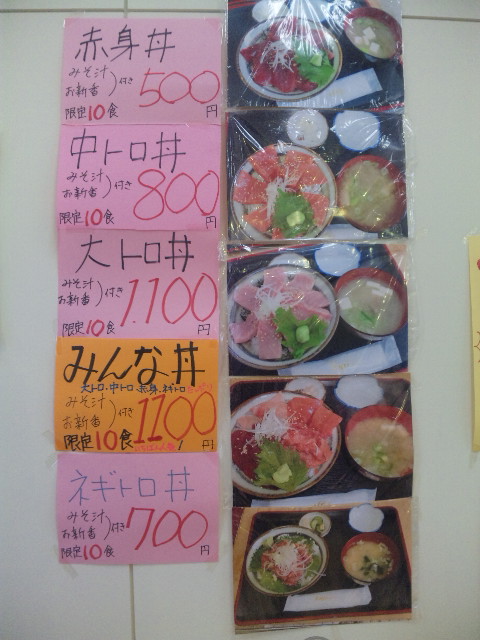 赤身丼
みそ汁
お新香
付き
500
限定10食
円
中トロ丼
みそ汁
お新香
付き
800
限定10食
円
大トロ丼
みそ汁
お新香
付き
1.100
限定10食
円
みんな丼
大トロ・中トロ 赤身・ネギトロ
みそ汁
お新香
付き
1100
限定10食
円
ネギトロ丼
みそ汁
お新香
付き
700
限定10食
円